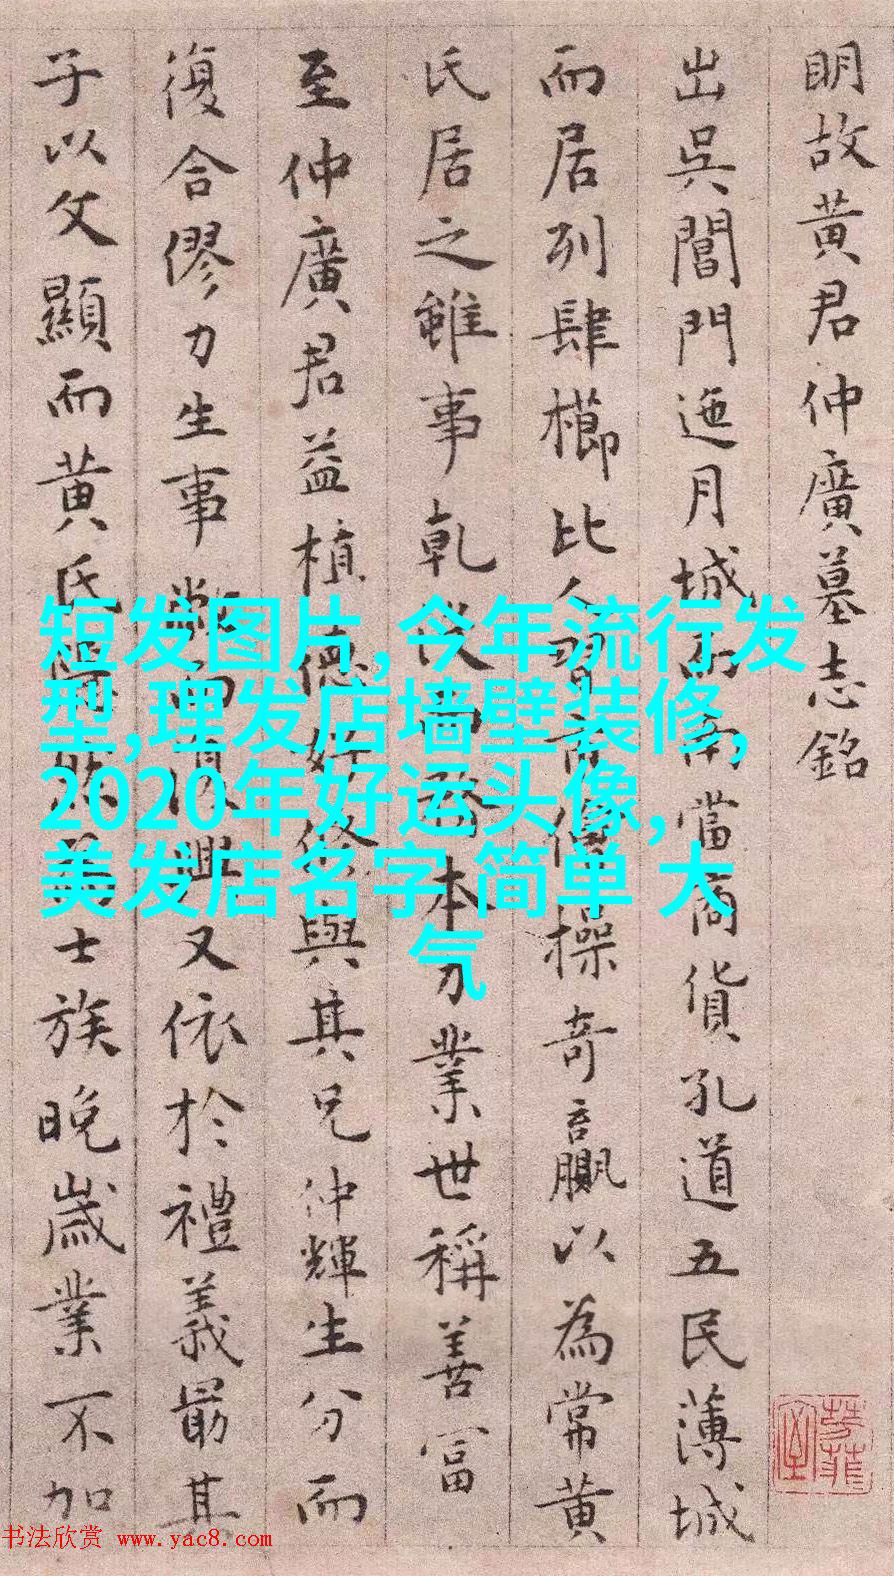 明故黄君仲廣墓志銘
出吳閶門迤月城而南當商貨孔道五民薄城
而居列肆櫛比人習奇操奇贏以為常黄
氏居之雖事乾没而務本力業世稱善富
至仲廣君益植德好修與其兄仲輝生分而
復合僇力生事 而 興又依於禮義最其
子以文顯而黄氏 士族晚歲業不加
短发图片,今年流行发
型,理发店墙壁装修,
2020年好运头像,
美发店名字 简单 大
气
书法欣赏 www.yac8.com